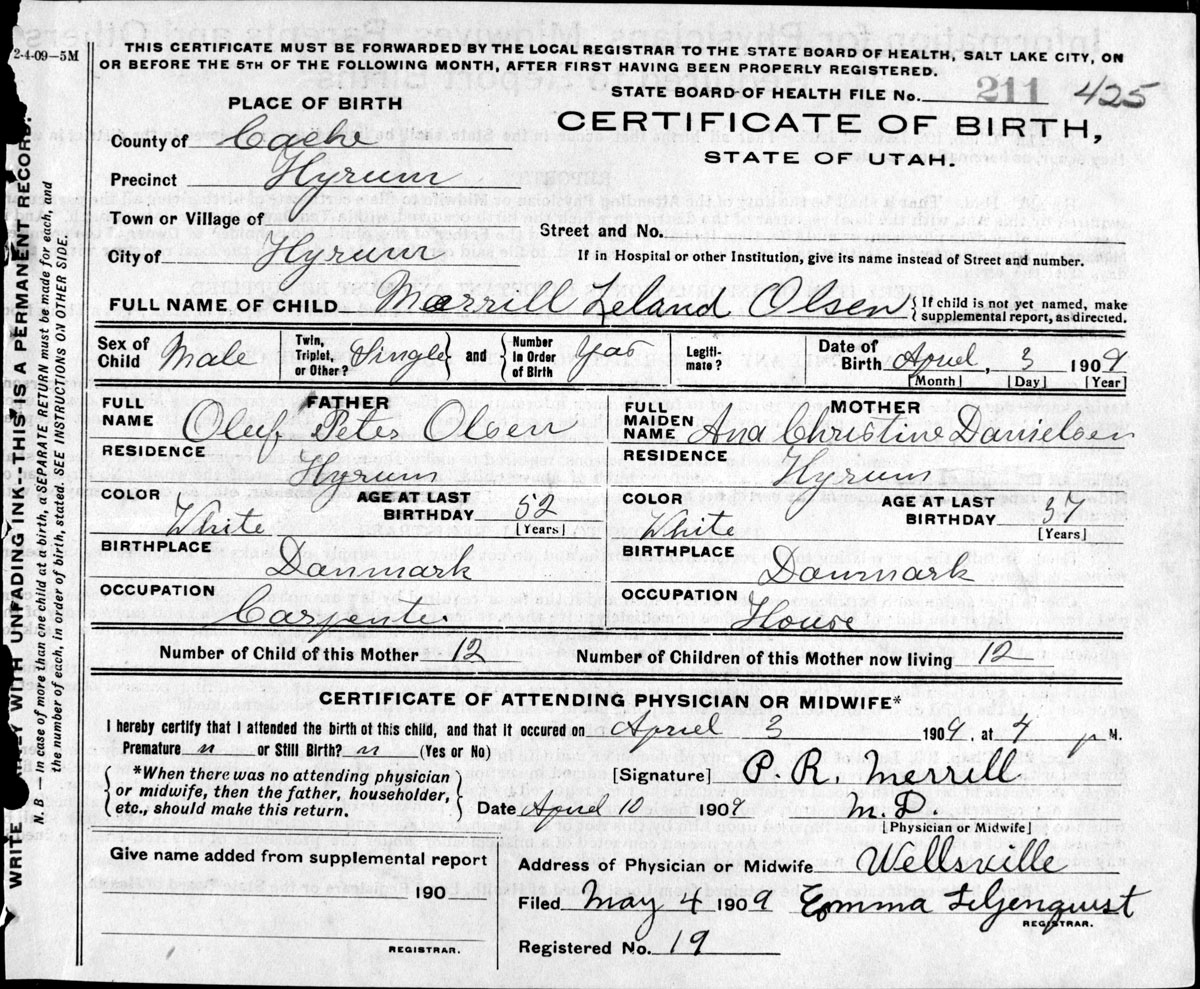 2-4-09—5M
THIS CERTIFICATE MUST BE FORWARDED BY THE LOCAL REGISTRAR TO THE STATE BOARD OF HEALTH, SALT LAKE CITY, ON
OR BEFORE THE 5TH OF THE FOLLOWING MONTH, AFTER FIRST HAVING BEEN PROPERLY REGISTERED.
STATE BOARD OF HEALTH FILE No. 211 425
PLACE OF BIRTH
CERTIFICATE OF BIRTH,
STATE OF UTAH.
County of Cache
Precinct Hyrum
Town or Village of
Street and No.
City of Hyrum
If in Hospital or other Institution, give its name instead of Street and number.
FULL NAME OF CHILD Merrill Leland Olsen { If child is not yet named, make supplemental report, as directed.
Sex of Child Male Twin, Triplet, or Other? Single } and { Number in Order of Birth Yas Legiti-mate? Date of Birth April, 3 1909
[Month] [Day] [Year]
FULL NAME FATHER Oluf Peter Olsen
RESIDENCE Hyrum
COLOR White AGE AT LAST BIRTHDAY 52 [Years]
BIRTHPLACE Danmark
OCCUPATION Carpenter
FULL MAIDEN NAME MOTHER Ana Christine Danielsen
RESIDENCE Hyrum
COLOR White AGE AT LAST BIRTHDAY 37 [Years]
BIRTHPLACE Danmark
OCCUPATION House
Number of Child of this Mother 12
Number of Children of this Mother now living 12
CERTIFICATE OF ATTENDING PHYSICIAN OR MIDWIFE*
I hereby certify that I attended the birth of this child, and that it occured on April 3 1909, at 4 p M.
Premature n or Still Birth? n (Yes or No)
{ *When there was no attending physician or midwife, then the father, householder, etc., should make this return. }
[Signature] P. R. Merrill
Date April 10 1909 M.D.
[Physician or Midwife]
Give name added from supplemental report
190
REGISTRAR.
Address of Physician or Midwife Wellsville
Filed May 4 1909 Emma Liljenquist
REGISTRAR.
Registered No. 19
WRITE WITH UNFADING INK--THIS IS A PERMANENT RECORD.
N. B.—In case of more than one child at a birth, a SEPARATE RETURN must be made for each, and
the number of each, in order of birth, stated. SEE INSTRUCTIONS ON OTHER SIDE.